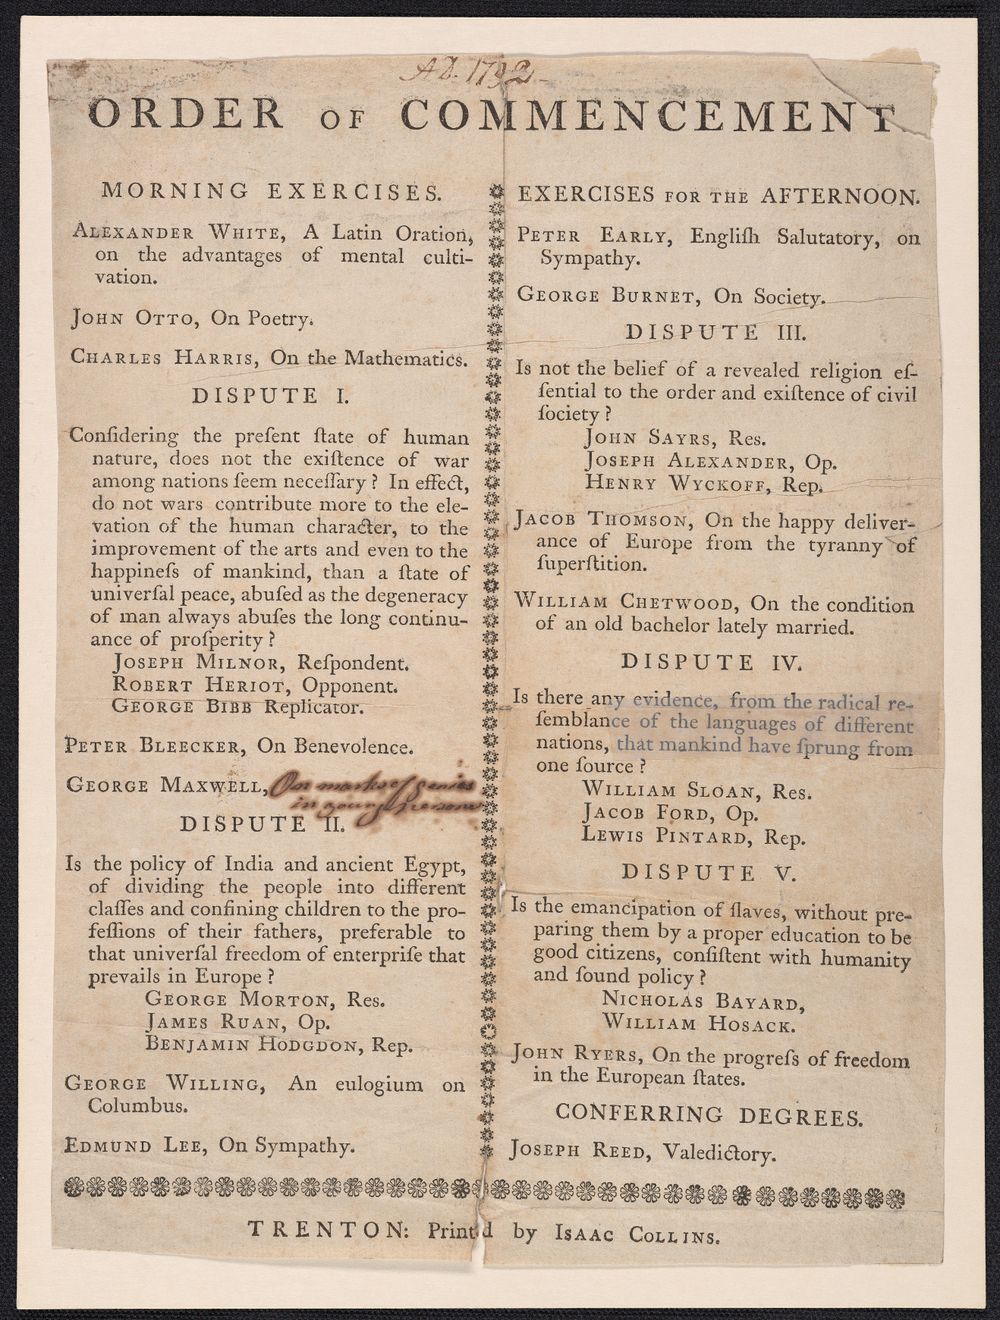 AD. 1792
ORDER OF COMMENCEMENT
MORNING EXERCISES.
ALEXANDER WHITE, A Latin Oration,
on the advantages of mental culti-
vation.
JOHN OTTO, On Poetry.
CHARLES HARRIS, On the Mathematics.
DISPUTE I.
Conſidering the preſent ſtate of human
nature, does not the exiſtence of war
among nations ſeem neceſſary? In effect,
do not wars contribute more to the ele-
vation of the human character, to the
improvement of the arts and even to the
happineſs of mankind, than a ſtate of
univerſal peace, abuſed as the degeneracy
of man always abuſes the long continu-
ance of proſperity?
JOSEPH MILNOR, Reſpondent.
ROBERT HERIOT, Opponent.
GEORGE BIBB Replicator.
PETER BLEECKER, On Benevolence.
GEORGE MAXWELL, On marks of genius
in young persons
DISPUTE II.
Is the policy of India and ancient Egypt,
of dividing the people into different
claſſes and confining children to the pro-
feſſions of their fathers, preferable to
that univerſal freedom of enterpriſe that
prevails in Europe?
GEORGE MORTON, Res.
JAMES RUAN, Op.
BENJAMIN HODGDON, Rep.
GEORGE WILLING, An eulogium on
Columbus.
EDMUND LEE, On Sympathy.
EXERCISES FOR THE AFTERNOON.
PETER EARLY, Engliſh Salutatory, on
Sympathy.
GEORGE BURNET, On Society.
DISPUTE III.
Is not the belief of a revealed religion eſ-
ſential to the order and exiſtence of civil
ſociety?
JOHN SAYRS, Res.
JOSEPH ALEXANDER, Op.
HENRY WYCKOFF, Rep.
JACOB THOMSON, On the happy deliver-
ance of Europe from the tyranny of
ſuperſtition.
WILLIAM CHETWOOD, On the condition
of an old bachelor lately married.
DISPUTE IV.
Is there any evidence, from the radical re-
ſemblance of the languages of different
nations, that mankind have ſprung from
one ſource?
WILLIAM SLOAN, Res.
JACOB FORD, Op.
LEWIS PINTARD, Rep.
DISPUTE V.
Is the emancipation of ſlaves, without pre-
paring them by a proper education to be
good citizens, conſiſtent with humanity
and ſound policy?
NICHOLAS BAYARD,
WILLIAM HOSACK.
JOHN RYERS, On the progreſs of freedom
in the European ſtates.
CONFERRING DEGREES.
JOSEPH REED, Valedictory.
TRENTON: Print'd by ISAAC COLLINS.